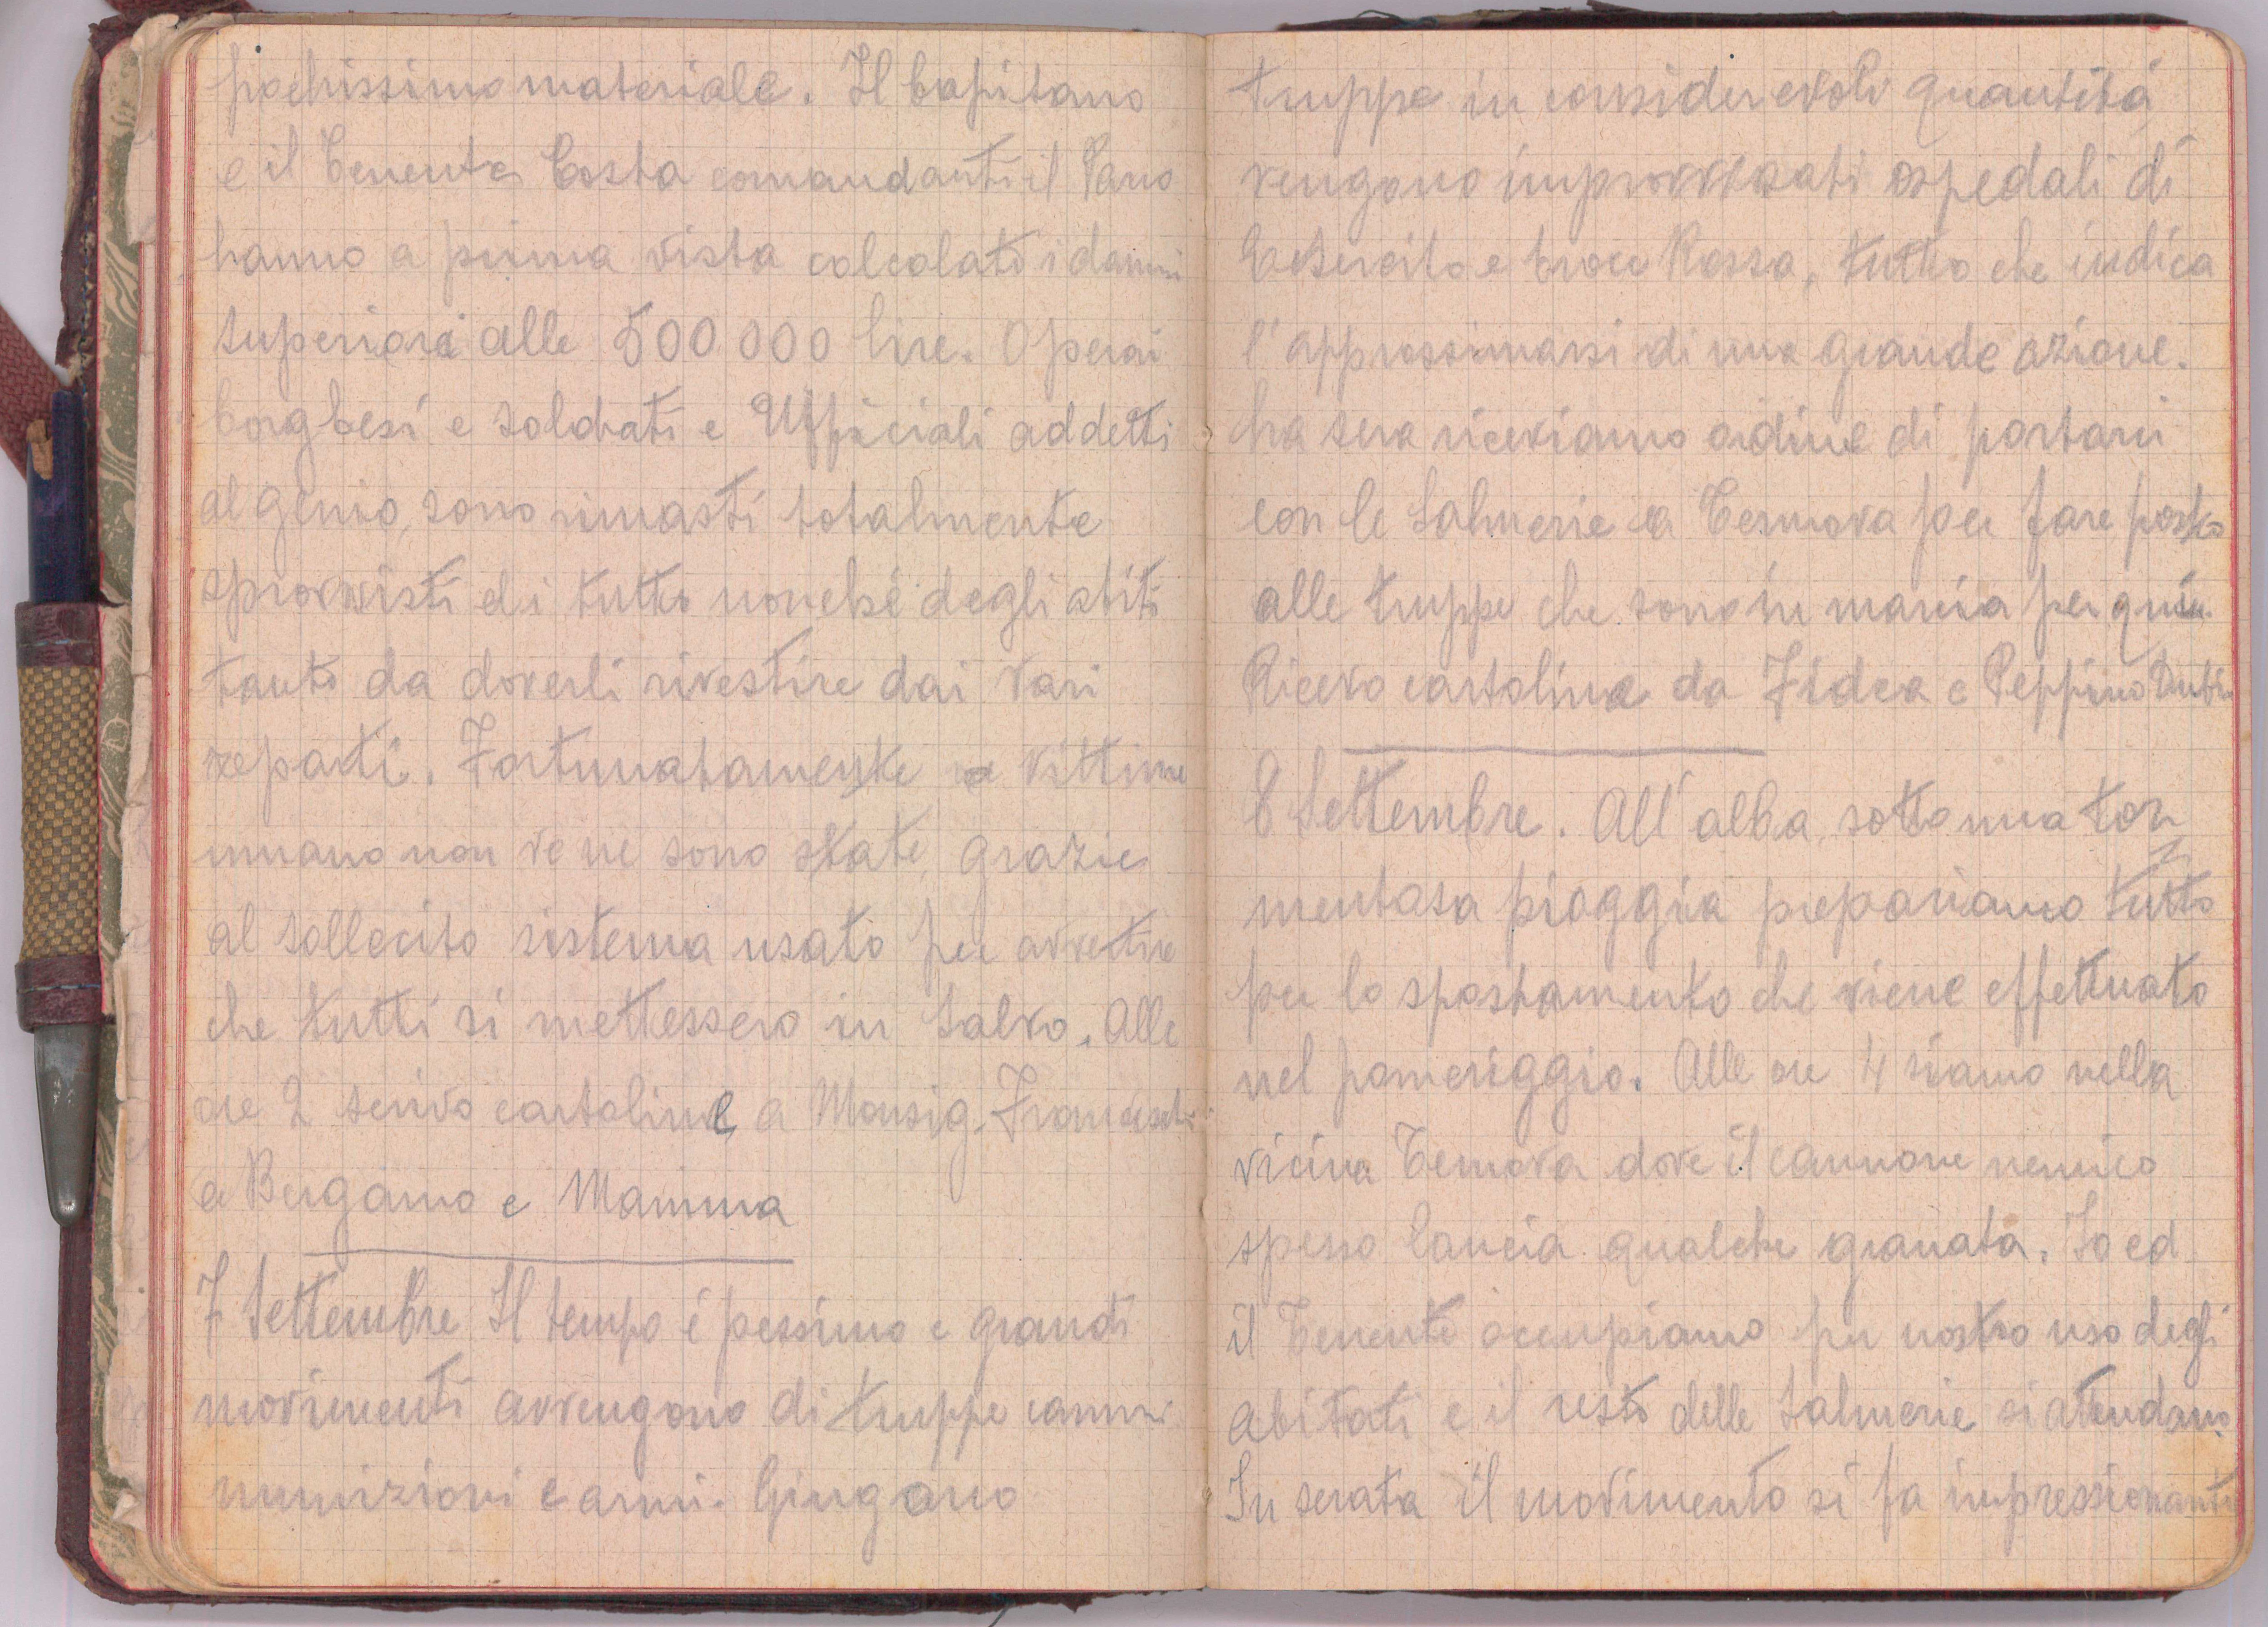 pochissimo materiale. Il Capitano
e il Tenente Costa comandanti il Parco
hanno a prima vista calcolati i danni
superiori alle 500.000 lire. Operai
borghesi e soldati e Ufficiali addetti
al genio, sono rimasti totalmente
sprovvisti di tutto nonché degli abiti
tanto da doverli rivestire dai vari
reparti. Fortunatamente vittime
umane non ve ne sono state, grazie
al sollecito sistema usato per avvertire
che tutti si mettessero in salvo. Alle
ore 2 scrivo cartoline a Monsig. Franceschi
a Bergamo e Mamma
7 Settembre Il tempo é pessimo e grandi
movimenti avvengono di truppe
munizioni e armi. Giungono
truppe in considerevoli quantitá
vengono improvvisati ospedali di
Esercito e Croce Rossa, tutto che indica
l'approssimarsi di una grande azione.
La sera riceviamo ordine di portarci
con le Salmerie a Ternova per fare posto
alle truppe che sono in marcia per qui.
Ricevo cartoline da Fidea e Peppino
8 Settembre. All'alba sotto una tor
mentosa pioggia prepariamo tutto
per lo spostamento che viene effettuato
nel pomeriggio. Alle ore 4 siamo nella
vicina Ternova dove il cannone nemico
spesso lancia qualche granata. Io ed
il Tenente occupiamo per nostro uso degli
abitati e il resto delle Salmerie si attendano.
In serata il movimento si fa impressionante